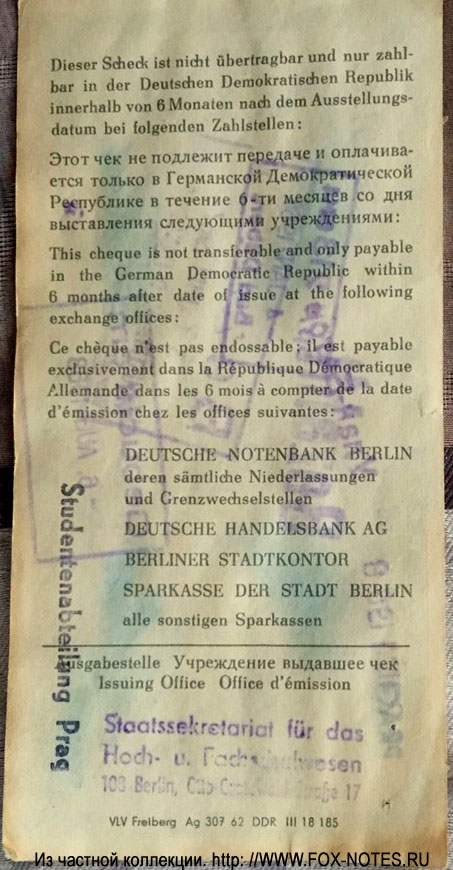 Dieser Scheck ist nicht übertragbar und nur zahl-
bar in der Deutschen Demokratischen Republik
innerhalb von 6 Monaten nach dem Ausstellungs-
datum bei folgenden Zahlstellen:
Этот чек не подлежит передаче и оплачива-
ется только в Германской Демократической
Республике в течение 6-ти месяцев со дня
выставления следующими учреждениями:
This cheque is not transferable and only payable
in the German Democratic Republic within
6 months after date of issue at the following
exchange offices:
Ce chèque n'est pas endossable; il est payable
exclusivement dans la République Démocratique
Allemande dans les 6 mois à compter de la date
d'émission chez les offices suivantes:
DEUTSCHE NOTENBANK BERLIN
deren sämtliche Niederlassungen
und Grenzwechselstellen
DEUTSCHE HANDELSBANK AG
BERLINER STADTKONTOR
SPARKASSE DER STADT BERLIN
alle sonstigen Sparkassen
Studentenabteilung Prag
Ausgabestelle Учреждение выдавшее чек
Issuing Office Office d'émission
Staatssekretariat für das
Hoch- u. Fachschulwesen
108 Berlin, Otto-Grotewohl-Straße 17
VLV Freiberg Ag 307 62 DDR III 18 185
Из частной коллекции. http: //WWW.FOX-NOTES.RU